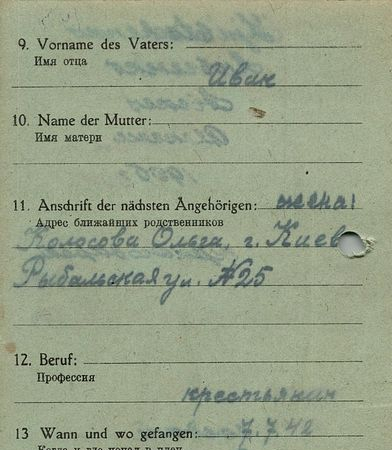 9. Vorname des Vaters:
Имя отца
Иван
10. Name der Mutter:
Имя матери
11. Anschrift der nächsten Angehörigen: жена:
Адрес ближайших родственников
Колосова Ольга, г. Киев
Рыбальская ул. №25
12. Beruf:
Профессия
крестьянин
13 Wann und wo gefangen: 7.7.42
Когда и где попал в плен